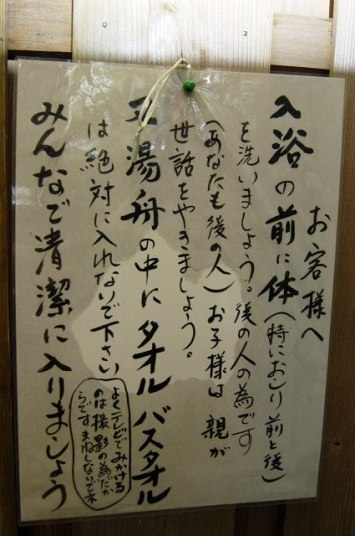 お客様へ
入浴の前に体(特におしり前と後)
を洗いましょう。後の人の為です
(あなたも後の人)お子様は親が
世話をやきましょう。
又湯舟の中にタオルバスタオル
は絶対に入れないで下さい
よくテレビでみかける
のは撮影の為だか
らですまねしないでネ
みんなで清潔に入りましょう